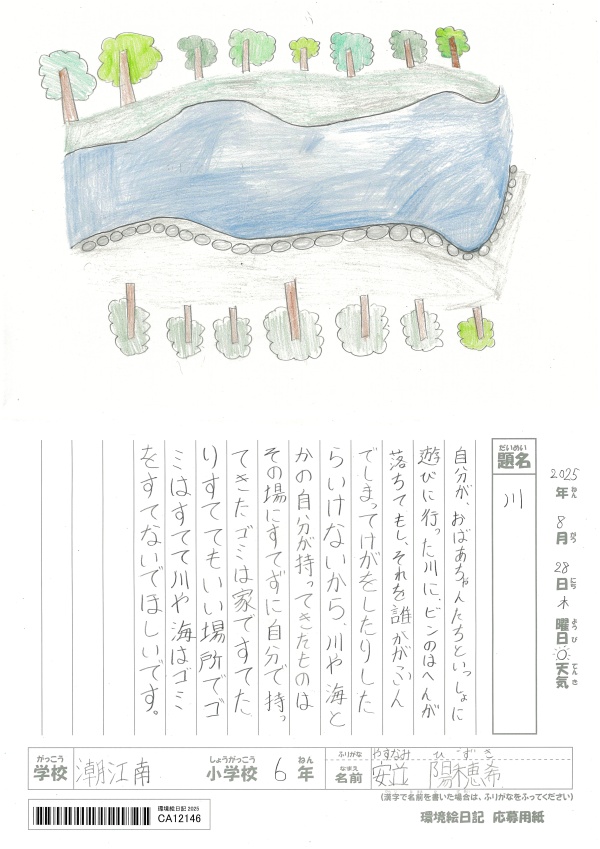 2025年ねん 8月がつ 28日にち 木曜日ようび 天気てんき
だいめい
題名
川
自分が、おばあちゃんたちといっしょに
遊びに行った川に、ビンのはへんが
落ちてもし、それを誰かがふん
でしまってけがをしたりした
らいけないから、川や海と
かの自分が持ってきたものは
その場にすてずに自分で持っ
てきたゴミは家ですてた
りすててもいい場所でゴ
ミはすてて川や海はゴミ
をすてないでほしいです。
がっこう
学校 潮江南
しょうがっこう ねん
小学校 6年
ふりがな やすなみ ひずき
なまえ
名前 安並 陽穂希
(漢字で名前を書いた場合は、ふりがなをふってください)
環境絵日記 2025
CA12146
環境絵日記 応募用紙